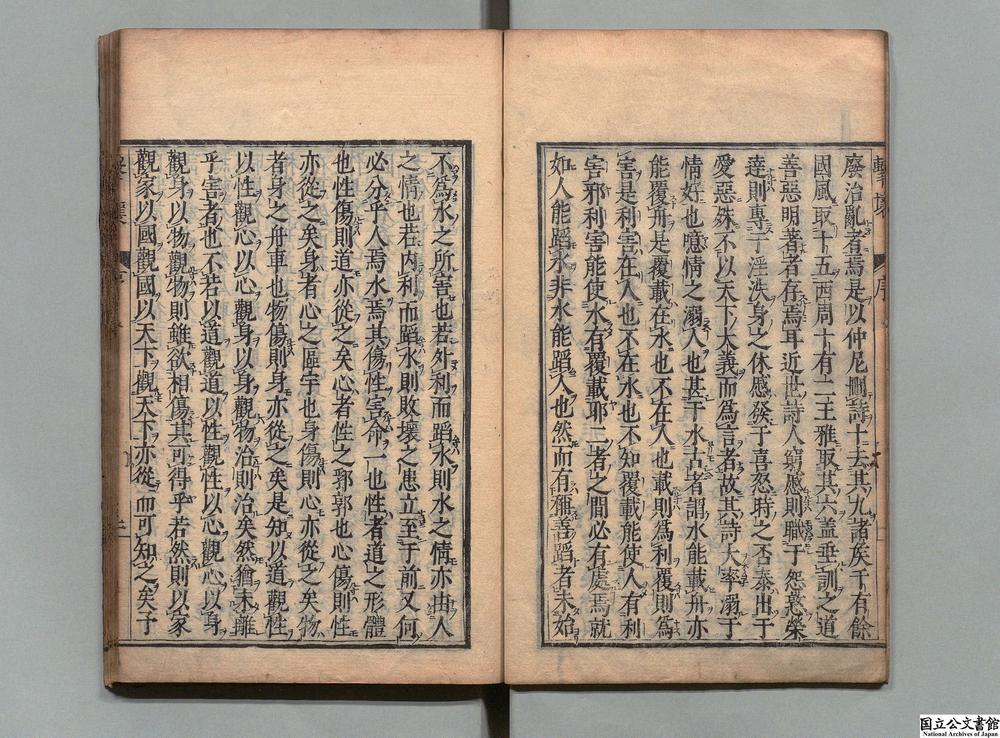 擊壤 序
廢治亂者焉是以仲尼刪詩十去其九諸矦千有餘
國風取十五西周十有二王雅取其六盖垂訓之道
善惡明著者存焉耳近世詩人窮慼則職于怨憝榮
達則專于淫泆身之休慼發于喜怒時之否泰出于
愛惡殊不以天下大義而爲言者故其詩大率溺于
情好也噫情之溺人也甚于水古者謂水能載舟亦
能覆舟是覆載在水也不在人也載則爲利覆則爲
害是利害在人也不在水也不知覆載能使人有利
害邪利害能使水有覆載耶二者之間必有處焉就
如人能蹈水非水能蹈人也然而有稱善蹈者未始
不爲水之所害也若外利而蹈水則水之情亦由人
之情也若內利而蹈水則敗壞之患立至于前又何
必分乎人焉水焉其傷性害命一也性者道之形體
也性傷則道亦從之矣心者性之郛郭也心傷則性
亦從之矣身者心之區宇也身傷則心亦從之矣物
者身之舟車也物傷則身亦從之矣是知以道觀性
以性觀心以心觀身以身觀物治則治矣然猶未離
乎害者也不若以道觀道以性觀性以心觀心以身
觀身以物觀物則雖欲相傷其可得乎若然則以家
觀家以國觀國以天下觀天下亦從而可知之矣予
国立公文書館
National Archives of Japan